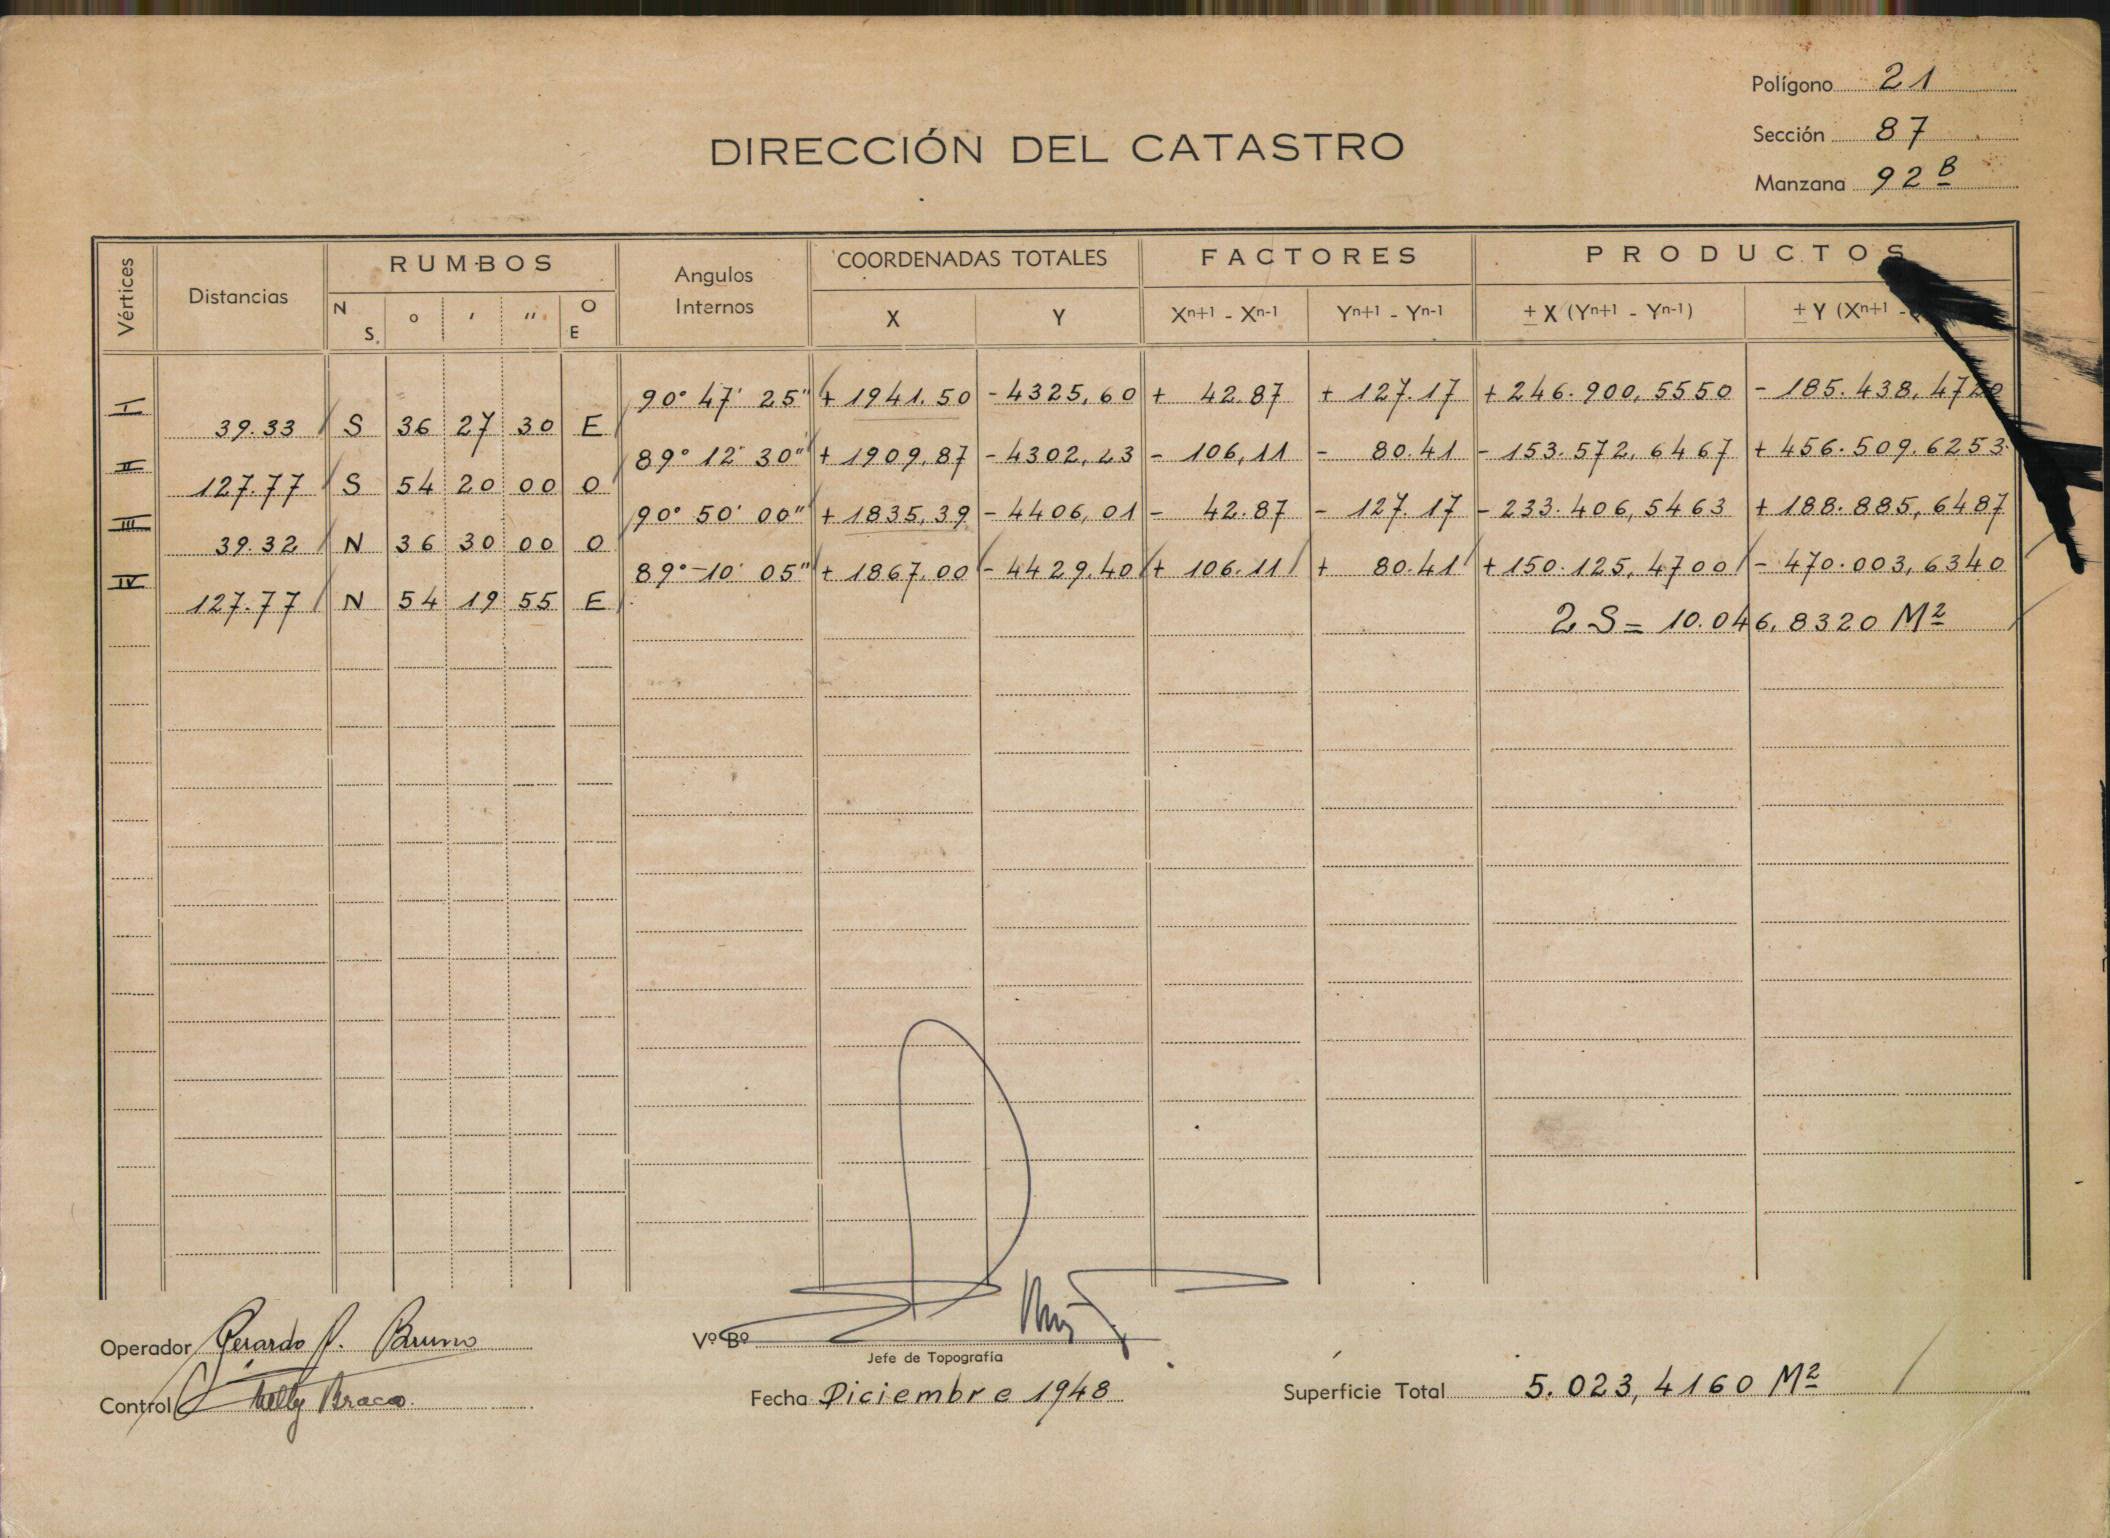 Polígono 21
DIRECCIÓN DEL CATASTRO
Sección 87
Manzana 92 B
Vértices Distancias RUMBOS Angulos Internos COORDENADAS TOTALES FACTORES PRODUCTOS
N S. o ' '' O E X Y Xn+1 - Xn-1 Yn+1 - Yn-1 ± X (Yn+1 - Yn-1) ± Y (Xn+1 -
I 90° 47' 25" + 1941.50 - 4325,60 + 42.87 + 127.17 + 246.900,5550 - 185.438,4720
39.33 S 36 27 30 E
II 89° 12' 30" + 1909,87 - 4302,23 - 106,11 - 80.41 - 153.572,6467 + 456.509.6253
127.77 S 54 20 00 O
III 90° 50' 00" + 1835,39 - 4406,01 - 42.87 - 127.17 - 233.406,5463 + 188.885,6487
39.32 N 36 30 00 O
IV 89° 10' 05" + 1867,00 - 4429.40 + 106.11 + 80.41 + 150.125,4700 - 470.003,6340
127.77 N 54 19 55 E
2 S = 10.046,8320 M2
Operador Gerardo P. Bruno
Vº Bº
Jefe de Topografía
Control Nelly Braco.
Fecha Diciembre 1948
Superficie Total 5.023,4160 M2